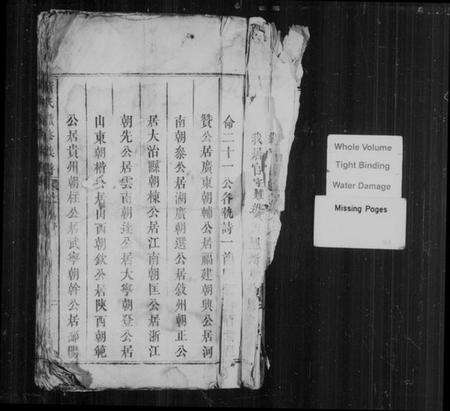 我居官字
命二十一公各執詩一首
贊公居廣東朝輔公居福建朝興公居河
南朝泰公居湖廣朝選公居敘州朝正公
居大治縣朝棟公居江南朝匡公居浙江
朝先公居雲南朝達公居大寧朝登公居
山東朝楷公居山西朝欽公居陝西朝範
公居貴州朝柱公居武寧朝幹公居
Whole Volume
Tight Binding
Water Damage
Missing Pages